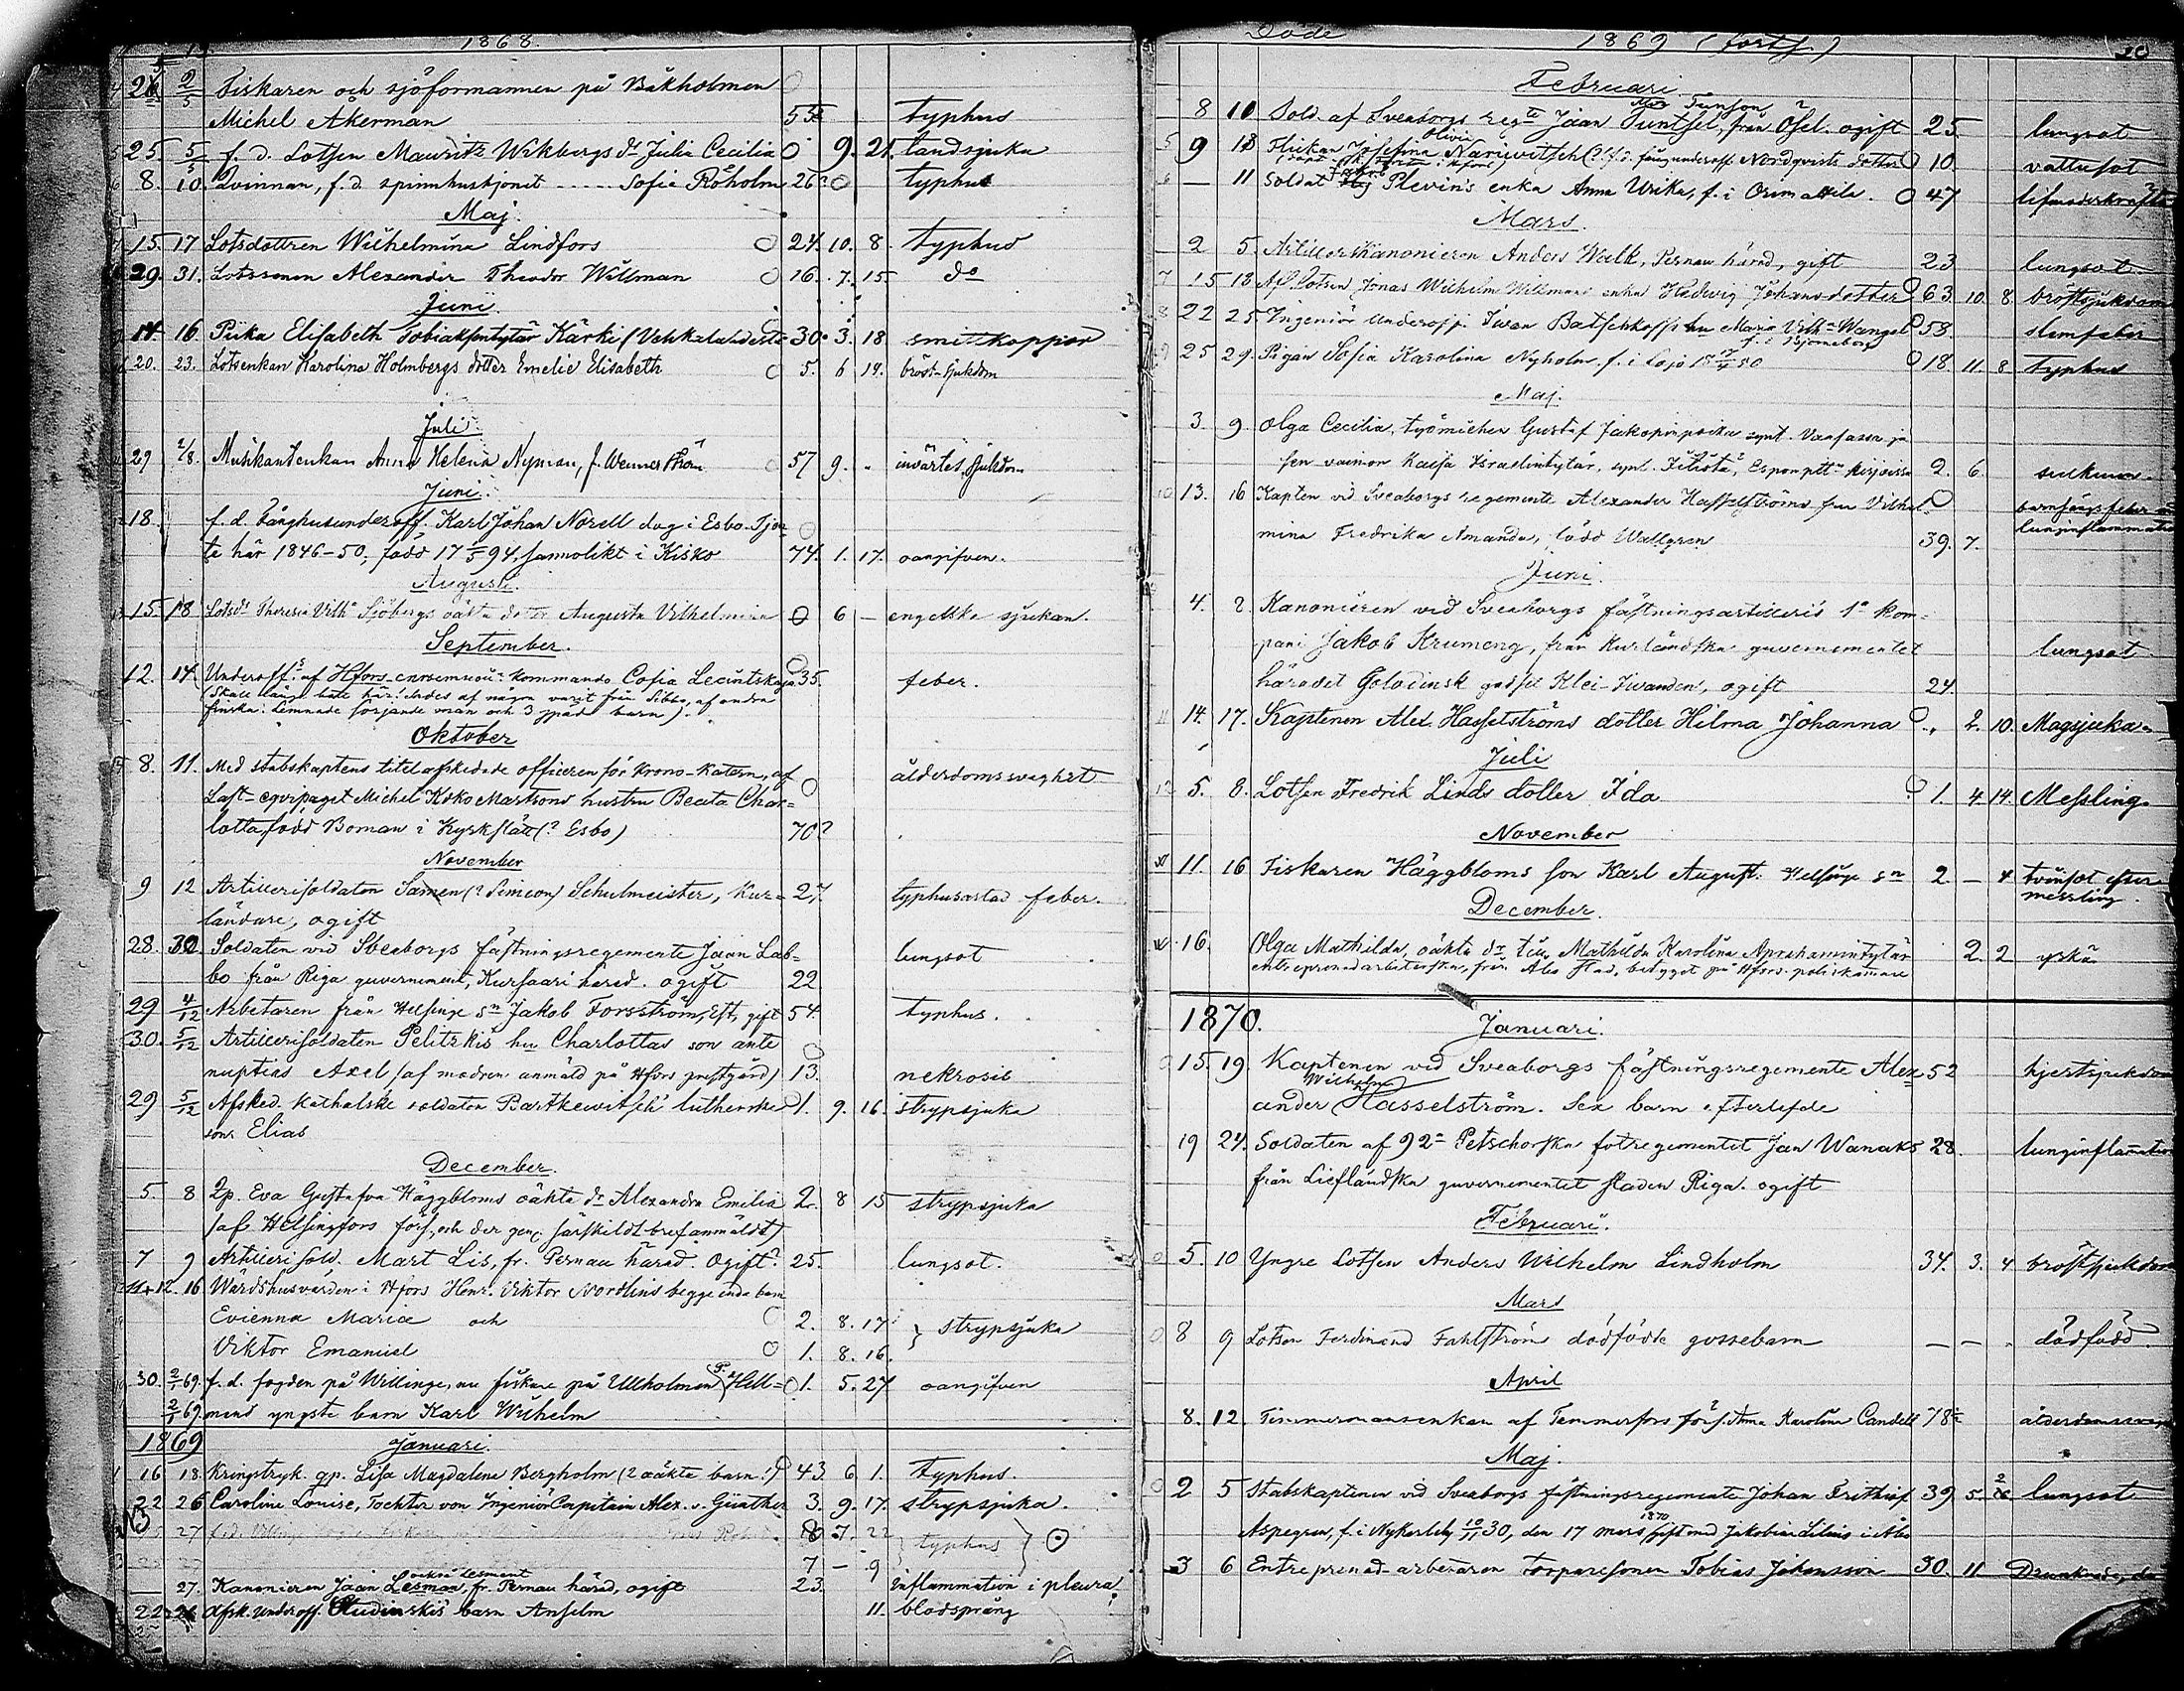 1868.
26 2/5 Fiskaren och sjöformannen på Båkholmen
Michel Åkerman 55 typhus
25. 5/5 f. d. Lotsen Mauritz Wikbergs dr Julia Cecilia 9. 21. landsjuka
8. 10. Qvinnan, f. d. spinnhushjonet ..... Sofia Röholm 26? typhus
Maj.
15. 17 Lotsdottren Wilhelmina Lindfors 24. 10. 8. typhus
29. 31. Lotssonen Alexander Theodor Willman 16. 7. 15. do
Juni
14. 16. Piika Elisabeth Tobiaksentytär Kärki (Vehkalahdesta 30. 3. 18 smittkoppor
20. 23. Lotsenkan Karolina Holmbergs dotter Emelie Elisabeth 5. 6 14. bröst-sjukdom
Juli
29 1/8. Musikantenkan Anna Helena Nyman, f. Wennerström 57 9. - invärtes sjukdom
Juni.
18. f. d. Fånghusunderoff. Karl Johan Norell dog i Esbo. Tjen
te här 1846-50, född 17 5/ 94, sannolikt i Kisko 74. 1. 17. oangifven.
Augusti.
15. 18 Lotsdr Theresia Vilh. Sjöbergs oäkta dotter Augusta Vilhelmina 6 — engelska sjukan.
September.
12. 14 Underoffrs af Hfors kommando Cofia Lecintskaja 35. feber.
(Skall länge bott här! Sades af några varit från Sibbo, af andra
finska. Lemnade sörjande man och 3 späd barn).
Oktober
8. 11. Med stabskaptens titel afskedade officeren för Krono-Katern. af
Last-eqvipaget Michel Kokko Martsons hustru Beata Char= ålderdomssvaghet
lotta, född Boman i Kyrkslätt (? Esbo) 70?
November
9 12 Artillerisoldaten Samen (? Simeon) Schulmeister, Kur= 27. typhusartad feber.
ländare, ogift
28. 30. Soldaten vid Sveaborgs fästningsregemente Jaan Lab= lungsot
bo från Riga guvernement, Kursaari härad. ogift 22
29 4/12 Arbetaren från Helsinge sn Jakob Forsström, Est, gift 54. typhus.
30. 5/12 Artillerisoldaten Pelitzkis hu Charlottas son ante
nuptias Axel (af modren anmäld på Hfors prestgård) 13. nekrosis
29 5/12 Afsked. katholske soldaten Bartkewitsch' lutherske 1. 9. 16. strypsjuka
son Elias
December.
5. 8 Qp. Eva Gustafva Häggbloms oäkta dr Alexandra Emilia 2. 8 15 strypsjuka
(af Helsingfors förs., och der gen. särskildt bref anmäldt)
7 9 Artillerisold. Mart Lis, fr. Pernau härad. Ogift? 25. lungsot.
11+12. 16 Wärdshusvärden i Hfors Henr. Viktor Nordlins begge enda barn
Evienna Maria och 2. 8. 17
Viktor Emanuel 1. 8. 16. } strypsjuka
30. 2/1 69. f. d. fogden på Willinge, nu fiskare på Ullholmen F. Hell= 1. 5. 27 oangifven
2/1 69. mans yngste barn Karl Wilhelm
1869 Januari.
16 18. Kringstryk. qp. Lisa Magdalena Bergholm (2 oäkta barn!) 43. 6 1. typhus.
22 26 Caroline Louise, Tochter von Ingeniör Capitain Alex. v. Günther 3. 9. 17. strypsjuka.
27 8 7. 22 } typhus
7 — 9
27. Kanonieren Jaan Lesman, fr. Pernau härad, ogift 23. inflammation i pleura
22 26 Afsk. Underoff. Rudinskis barn Anselm 11. blodsprång
Döde 1869 (forts.) 20
Februari
Tunson?
8 10 Sold. af Sveaborgs regte Jaan Tuntsel, från Ösel. ogift 25. lungsot
Olivia
9 13 Flickan Josefina Nariewitsch (? f. d. fångunderoff. Nordqvists dotter) 10. vattusot
— 11 Soldat Plevins enka Anna Ulrika, f. i Orimattila. 47
Mars.
2 5. Artilleri Kanonieren Anders Walk, Pernau härad, gift 23 lungsot
15 18 Afl. Lotsen Jonas Wilhelm Willmans enka Hedwig Johansdotter 63. 10. 8. bröstsjukdom
22 25. Ingeniör Underoff. Iwan Batschkoffs hu Maria Vilh. Wangel 58. slemfeber
f. i Björneborg
25 29. Pigan Sofia Karolina Nyholm, f. i Lojo 18 17/4 50 18. 11. 8 typhus
Maj.
3. 9. Olga Cecilia, työmiehen Gustaf Jakopinpoika synt. Vanhassa ja
sen vaimon Kaisa Israelintytär, synt. Espon pitt. kirjoissa 2. 6.
13. 16 Kapten vid Sveaborgs regemente Alexander Hasselströms fru Vilhel- barnsängsfeber
mina Fredrika Amanda, född Wallgren 39. 7. lunginflammation
Juni.
4. 2. Kanonieren vid Sveaborgs fästningsartilleris 1a kom=
pani Jakob Krumeng, från Kurländska guvernementet lungsot
häradet Goldinsk godset Klei-Iwanden, ogift 24
14. 17. Kaptenen Alex. Hasselströms dotter Hilma Johanna „ 2. 10. Magsjuka
Juli
5. 8. Lotsen Fredrik Linds dotter Ida 1. 4. 14. Messling
November
11. 16 Fiskaren Häggbloms son Karl August. Helsinge sn 2 — 4 tvinsot efter
messling.
December.
16. Olga Mathilda, oäkta dr till Mathilda Karolina Aprahamintytär 2. 2 yskä
entreprenadarbeterska, från Åbo stad, betyget på Hfors poliskammare
1870. Januari.
15. 19. Kaptenen vid Sveaborgs fästningsregemente Alex 52 hjertsjukdom
Wilhelm
ander Hasselström. Sex barn efterlefde
19 24. Soldaten af 92a Petschorska fotregementet Jan Wanaks 28. lunginflammation
från Liefländska guvernementet staden Riga. ogift
Februari.
5. 10 Yngre Lotsen Anders Wilhelm Lindholm 34. 3. 4 bröstsjukdom
Mars
8 9 Lotsen Ferdinand Fahlström dödfödde gossebarn — — dödfödd
April
8. 12. Timmermansenkan af Tammerfors förs. Anna Karolina Candell 78
Maj.
2 5 Stabskaptenen vid Sveaborgs fästningsregemente Johan Frithiof 39 5 lungsot
1870
Aspegren, f. i Nykarleby 10/11 30, den 17 mars gift med Jakobina Lilius i Åbo
3 6 Entreprenad-arbetaren torparesonen Tobias Johansson 30. 11 Drunknade